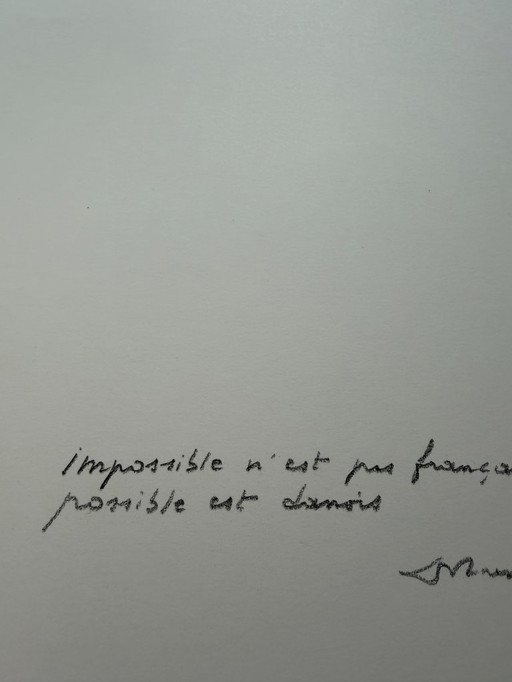 impossible n'est pas frança
possible est danois